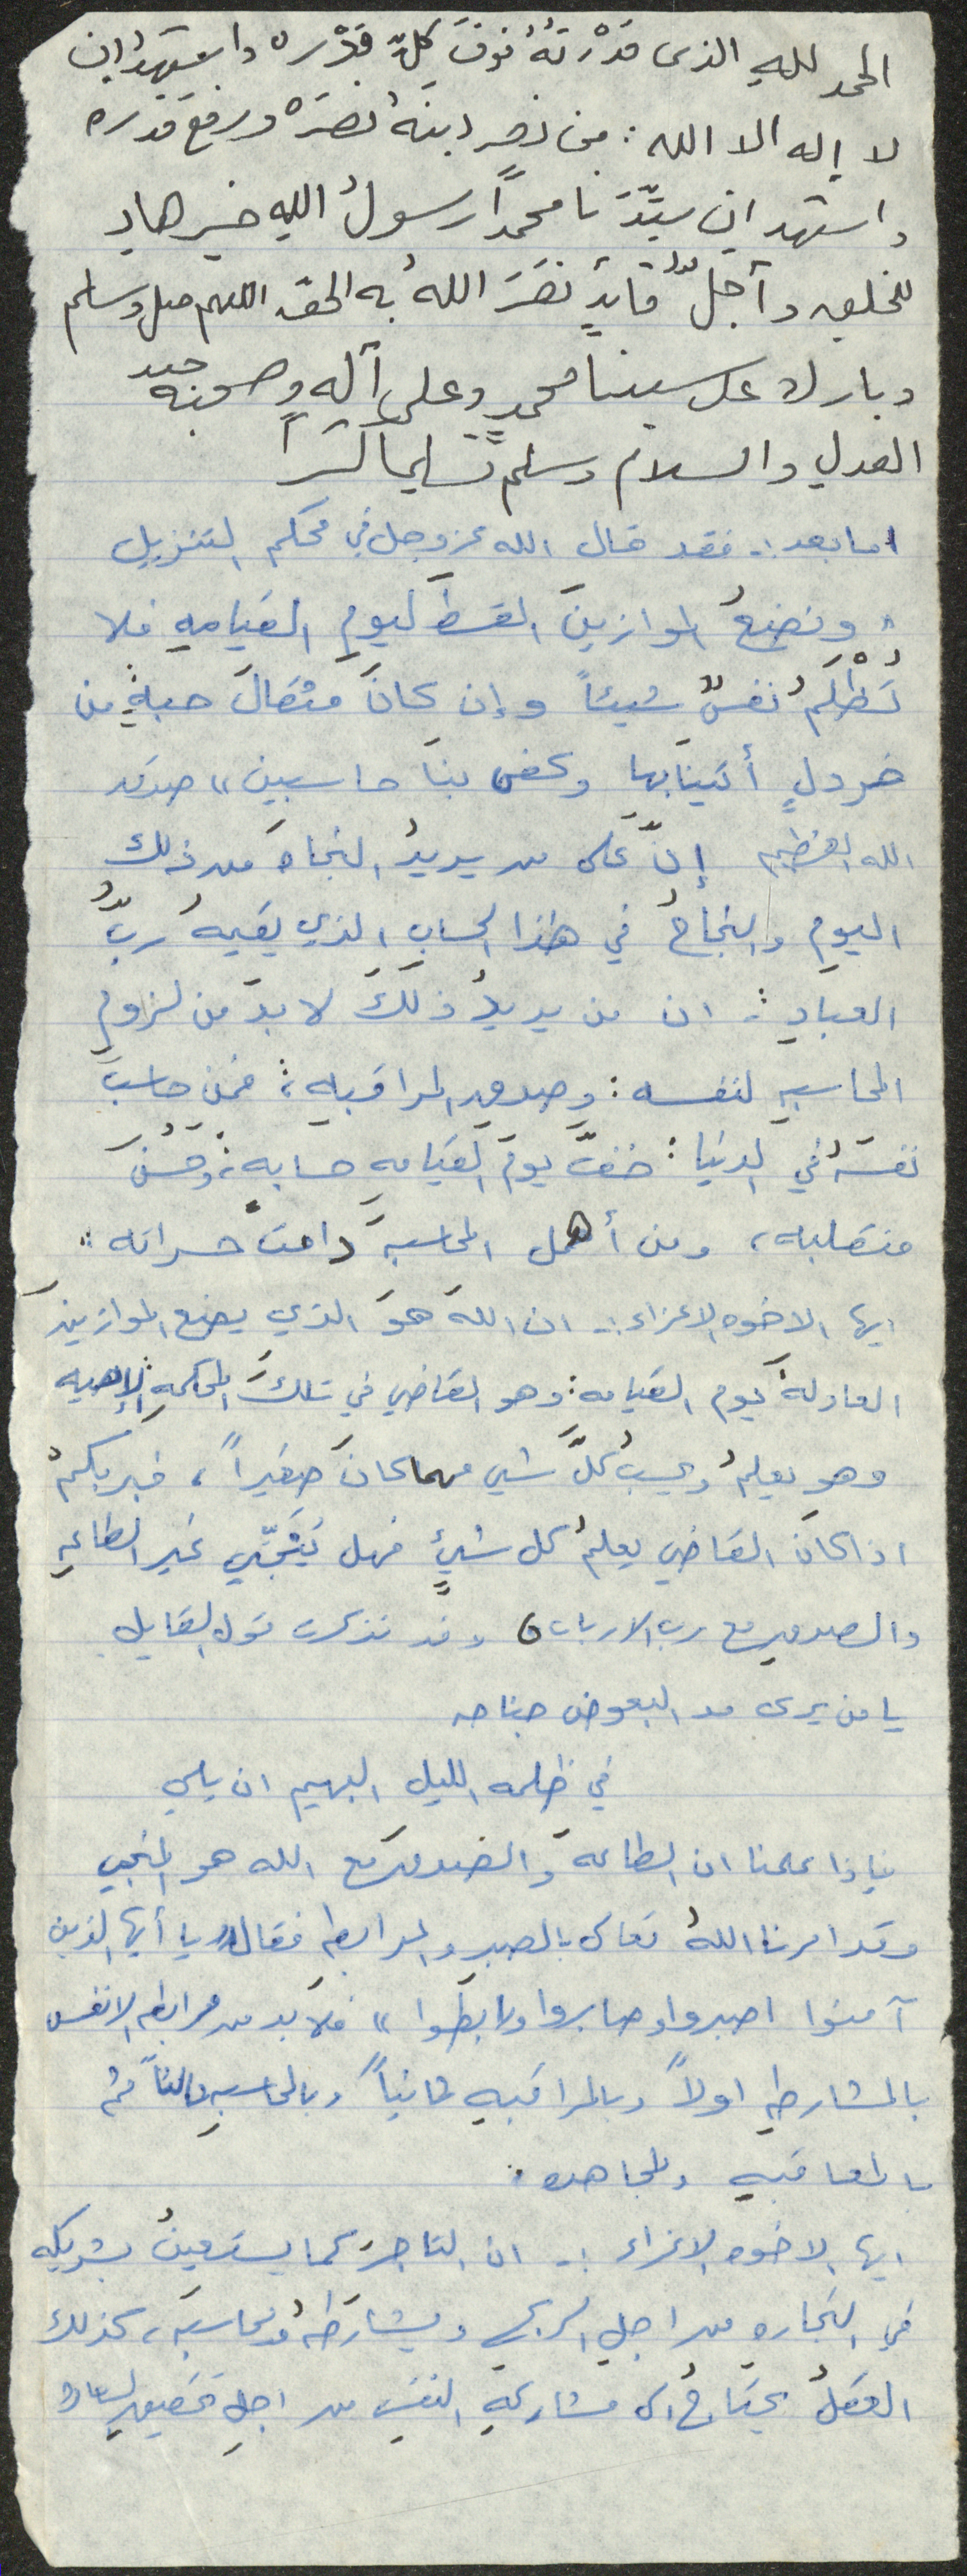 الحمد للهِ الذى قدْرتهُ فوقَ كلِّ قدْره واشهدُ ان
لا إله الا الله : من نصر دينهُ نصَرَهْ ورفع قدره
واشهد ان سيّدَنا محمداً رسولُ اللهِ خير هادٍ
للخلق وأجلُّ قايدٍ نصَرَ اللهُ به الحق اللهم صل وسلم
وبارك على سيدنا محمدٍ وعلى آله وصحبه جند
العدلِ والسلام وسلم تسليماً كثيراً
اما بعد :- فقد قال الله عز وجل في محكم التنزيل
" ونضعُ الموازينَ القسطَ ليوم القيامهِ فلا
تُظْلَمُ نفسٌ شيئاً وإن كانَ مثقالَ حبهٍ من
خردلٍ أتينا بها وكفى بنا حاسبين" صدق
الله العظيم إنَّ على من يريدُ النجاة من ذلك
اليومِ والنجاحَ في هذا الحسابِ الذي يقيمهُ ربُّ
العبادِ : ان من يريدُ ذلكَ لا بدَّ من لزومِ
المحاسبهِ لنفسه : وصدقِ المراقبهِ : فمن حاسبَ
نفسَهُ في الدنيا : خفَّ يومَ القيامهِ حسابه : وحَسُنَ
منقلبه، ومن أهمل المحاسبهَ دامت حسراته :
ايها الاخوه الاعزاء :- ان اللهَ هوَ الذي يضع الموازينَ
العادلهَ يوم القيامه : وهو القاضي في تلكَ المحكمهِ الإلهيه
وهو يعلمُ ويحسبُ كلَّ شيء مهما كانَ صغيراً، فبربكمْ
اذا كانَ القاضي يعلمُ كل شيءٍ فهل يُنَجّي غير الطاعهِ
والصدقِ مع رب الارباب، وقد تذكرت قول القايل
يا من يرى مد البعوض جناحه
في ظلمه الليل البهيم الأليل
فإذا علمنا ان الطاعهَ والصدقَ مع الله هو المنجي
وقد امرنا اللهُ تعالى بالصبرِ والمرابطه فقال" يا أيها الذين
آمنوا اصبروا وصابروا ورابطوا" فلا بد من مرابطه الانفس
بالمشارطهِ اولاً وبالمراقبهِ ثانياً وبالمحاسبهِ ثالثاً ثم
بالمعاقبهِ والمجاهده :
ايها الاخوه الاعزاء :- ان التاجرَ كما يستعينُ بشريكه
في التجارهِ من اجلِ الربحِ ويشارطهُ ويحاسبه، كذلك
العقلُ يحتاجُ الى مشاركهِ النفسِ من اجلِ تحقيقِ السعاده